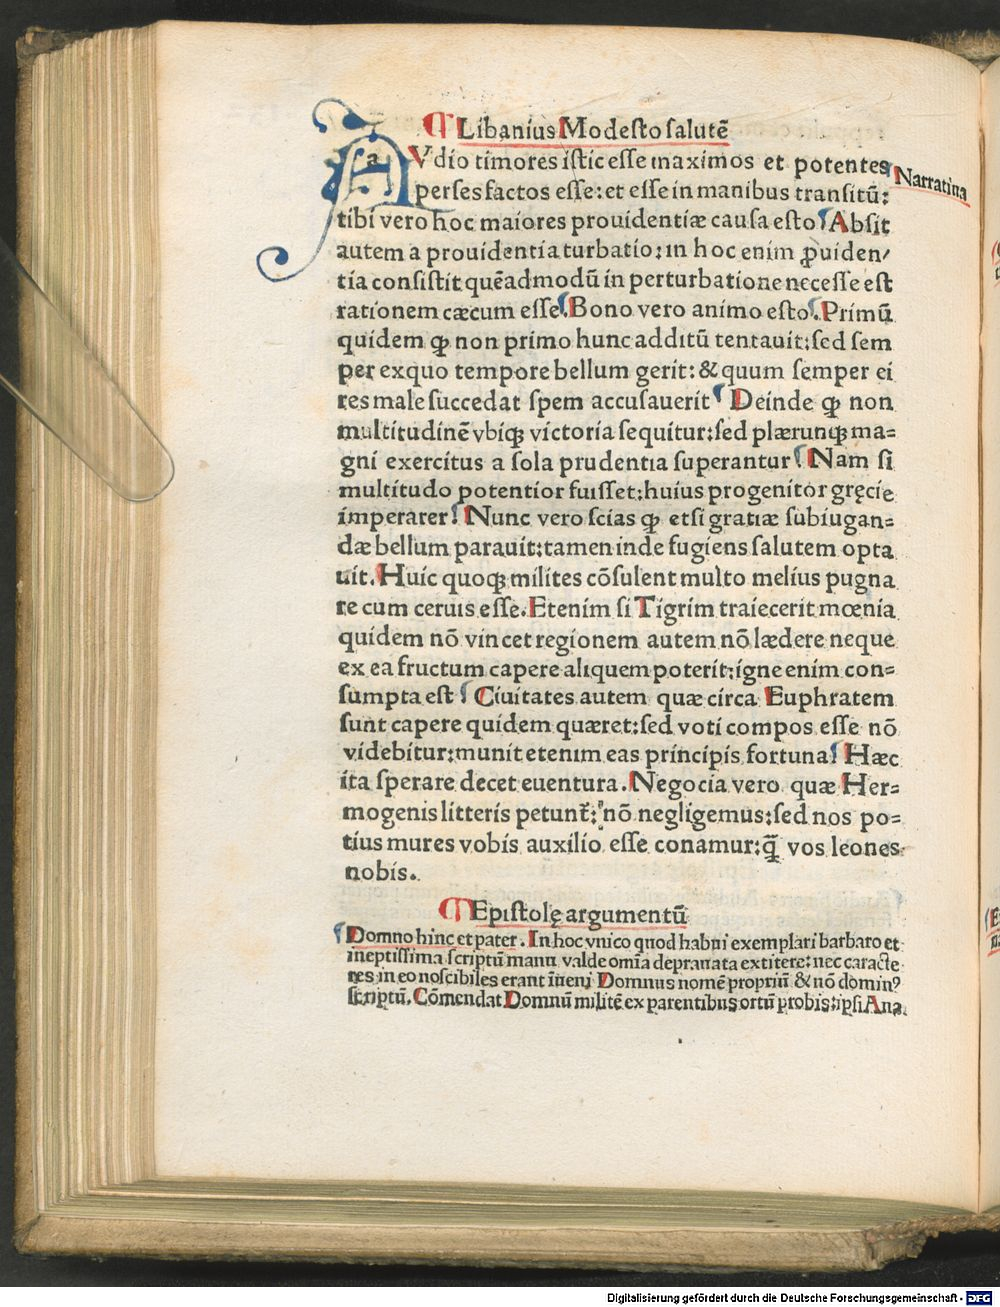 ¶ Libanius Modesto salutē
AVdio timores istic esse maximos et potentes
Narratiua
perses factos esse: et esse in manibus transitū:
tibi vero hoc maiores prouidentiæ causa esto. Absit
autem a prouidentia turbatio: in hoc enim ꝓuiden/
tia consistit quēadmodū in perturbatione necesse est
rationem cæcum esse. Bono vero animo esto. Primū
quidem ꝙ non primo hunc additū tentauit: sed sem
per exquo tempore bellum gerit: & quum semper ei
res male succedat spem accusauerit. Deinde ꝙ non
multitudinē vbiqꝫ victoria sequitur: sed plærunqꝫ ma=
gni exercitus a sola prudentia superantur. Nam si
multitudo potentior fuisset: huius progenitor gręcie
imperarer. Nunc vero scias ꝙ etsi gratiæ subiugan=
dæ bellum parauit: tamen inde fugiens salutem opta
uit. Huic quoqꝫ milites cōsulent multo melius pugna
re cum ceruis esse. Etenim si Tigrim traiecerit mœnia
quidem nō vincet regionem autem nō lædere neque
ex ea fructum capere aliquem poterit: igne enim con=
sumpta est. Ciuitates autem quæ circa Euphratem
sunt capere quidem quæret: sed voti compos esse nō
videbitur: munit etenim eas principis fortuna. Hæc
ita sperare decet euentura. Negocia vero quæ Her=
mogenis litteris petunt̄: nō negligemus: sed nos po=
tius mures vobis auxilio esse conamur: q̄ vos leones
nobis.
¶ Epistolę argumentū
Domno hinc et pater. In hoc vnico quod habui exemplari barbaro et
ineptissima scriptū manu valde omīa deprauata extitere: nec caracte
res in eo noscibiles erant īueni Domnus nomē propriū & nō domin⁹
scriptū. Cōmendat Domnū militē ex parentibus ortū probis: ipsi Ana
Digitalisierung gefördert durch die Deutsche Forschungsgemeinschaft - DFG